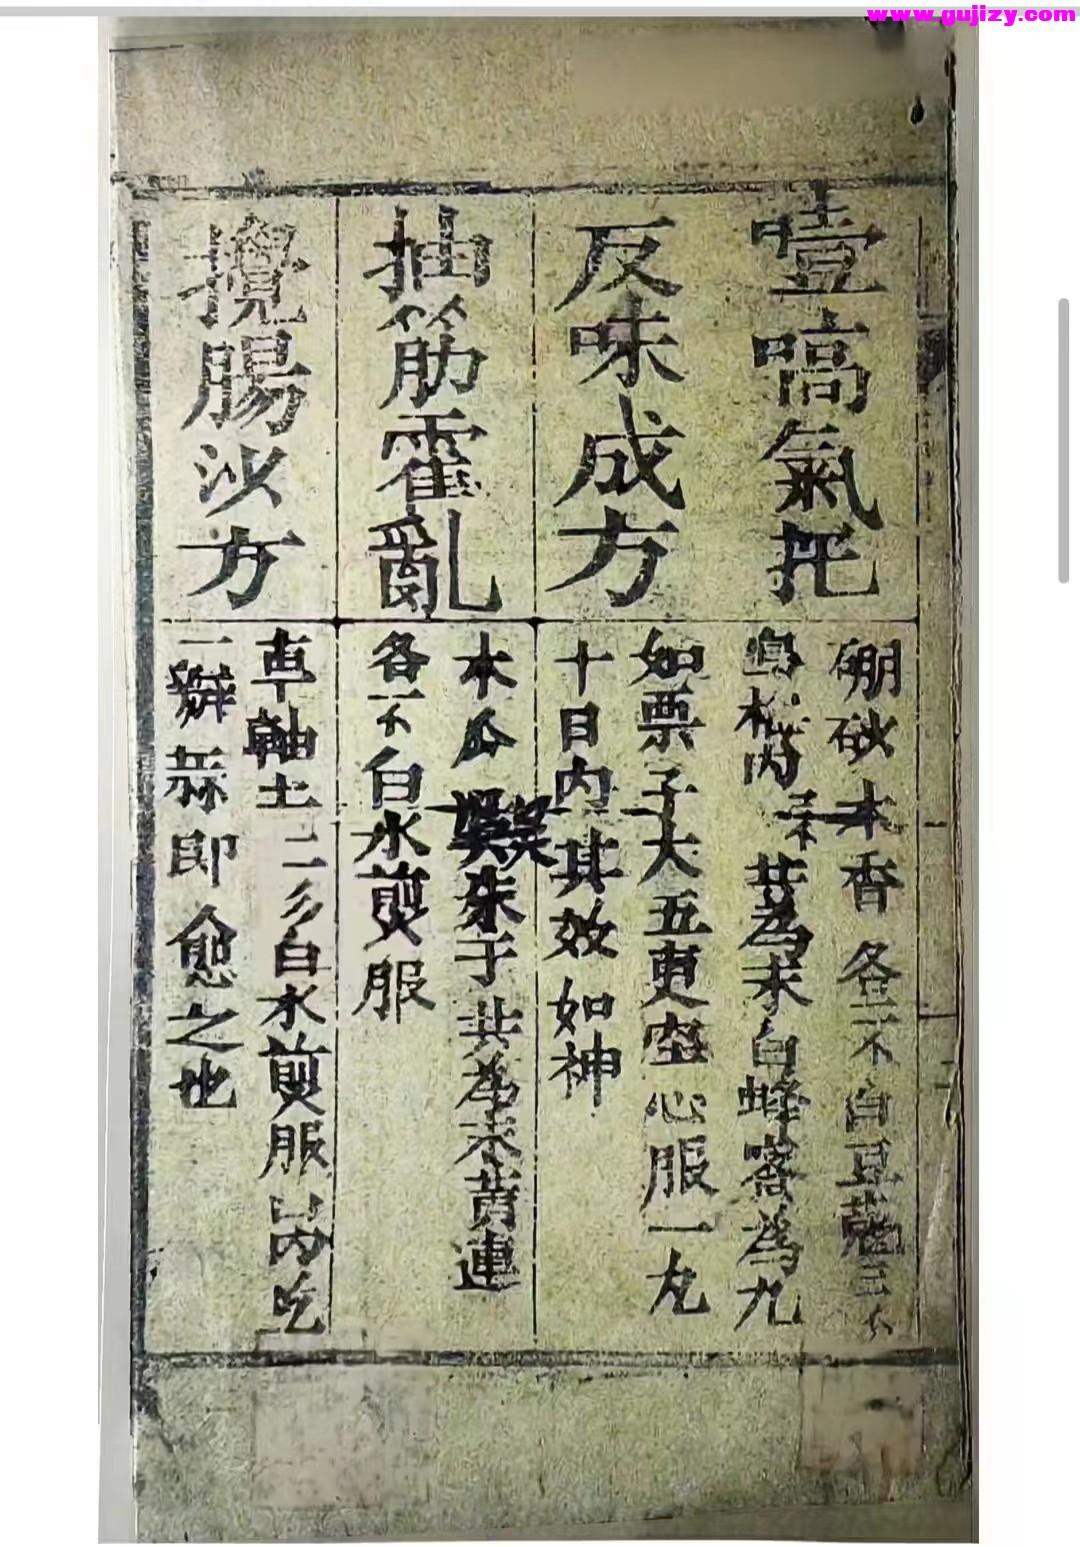 www.gujizy.com
噎嗝氣把
硼砂木香各三不白豆蔻三不
烏梅肉三不共為末白蜂密為九
反味成方
如票子大五更空心服一丸
十日內其效如神
抽筋霍亂
木瓜吳朱于共為末黄連
各一不白水煎服
攪腸沙方
車軸土二彡白水煎服以內吃
一辮蒜即愈之也